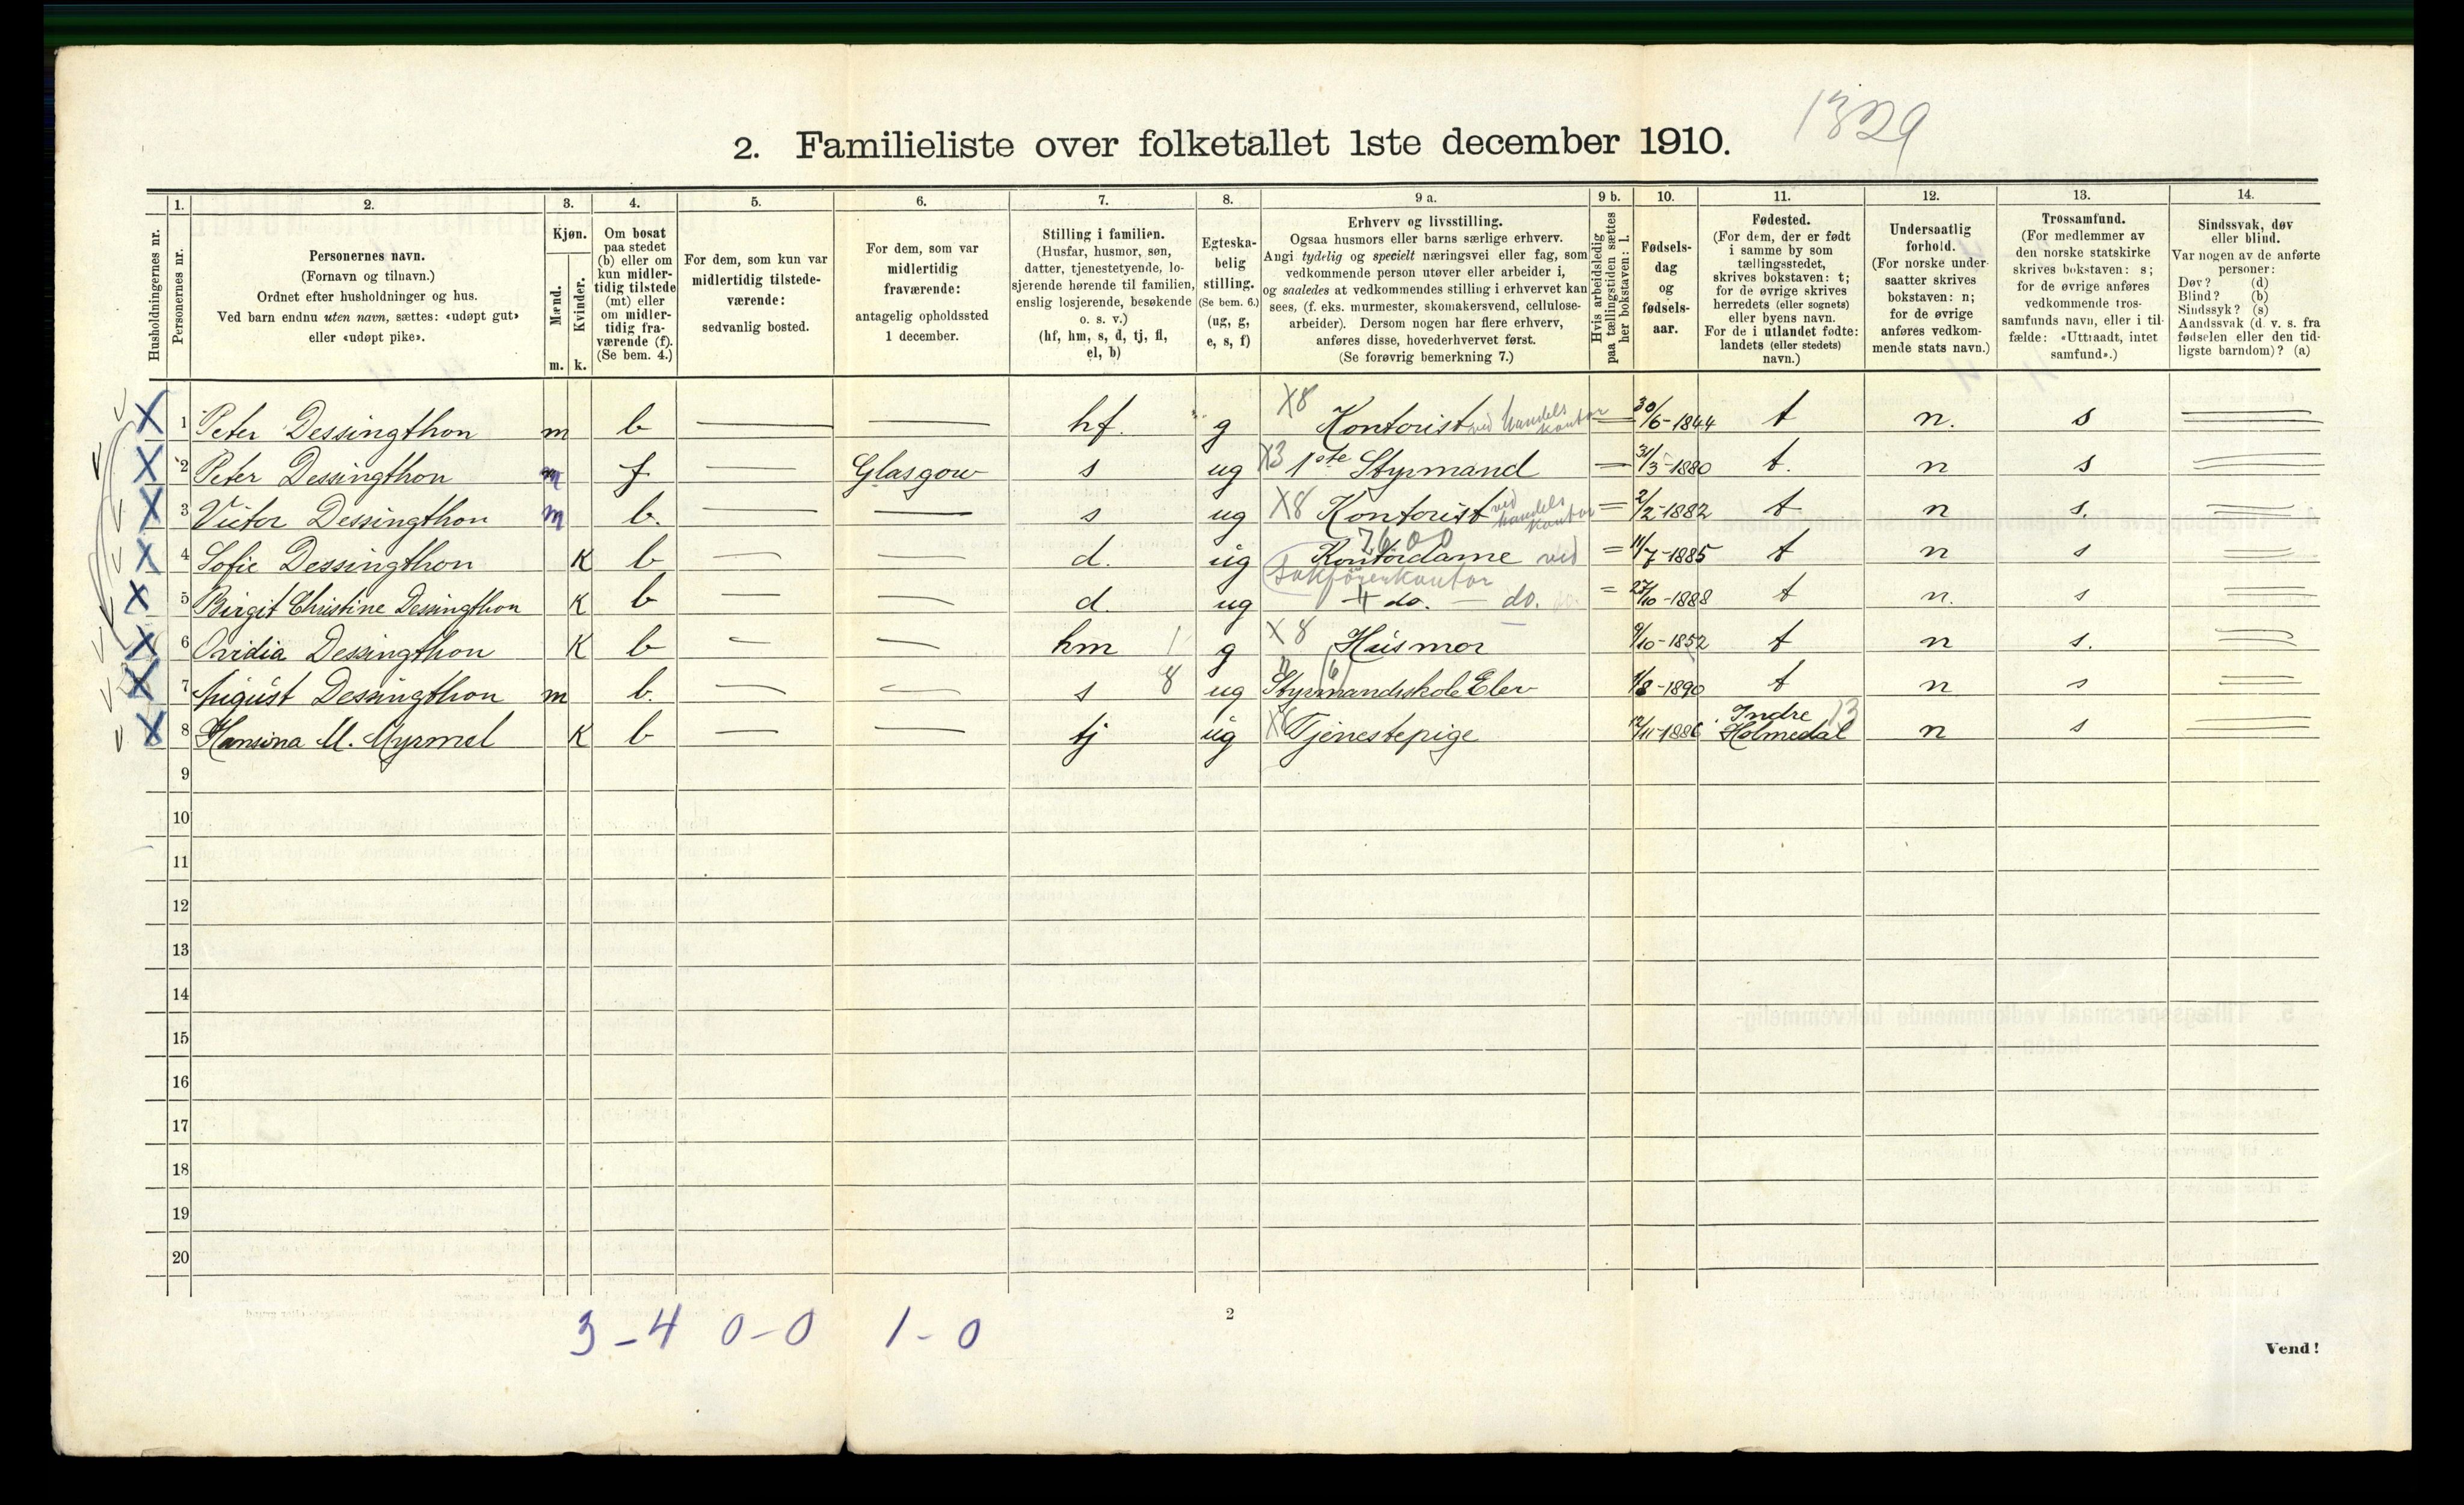 1329
2. Familieliste over folketallet 1ste december 1910.
1. 2. 3. 4. 5. 6. 7. 8. 9 a. 9 b. 10. 11. 12. 13. 14.
Husholdningernes nr.
Personernes nr.
Personernes navn.
(Fornavn og tilnavn.)
Ordnet efter husholdninger og hus.
Ved barn endnu uten navn, sættes: «udøpt gut»
eller «udøpt pike».
Kjøn.
Mænd.
Kvinder.
m. k.
Om bosat
paa stedet
(b) eller om
kun midler-
tidig tilstede
(mt) eller
om midler-
tidig fra-
værende (f).
(Se bem. 4.)
For dem, som kun var
midlertidig tilstede-
værende:
sedvanlig bosted.
For dem, som var
midlertidig
fraværende:
antagelig opholdssted
1 december.
Stilling i familien.
(Husfar, husmor, søn,
datter, tjenestetyende, lo-
sjerende hørende til familien,
enslig losjerende, besøkende
o. s. v.)
(hf, hm, s, d, tj, fl,
el, b)
Egteska-
belig
stilling.
(Se bem. 6.)
(ug, g,
e, s, f)
Erhverv og livsstilling.
Ogsaa husmors eller barns særlige erhverv.
Angi tydelig og specielt næringsvei eller fag, som
vedkommende person utøver eller arbeider i,
og saaledes at vedkommendes stilling i erhvervet kan
sees, (f. eks. murmester, skomakersvend, cellulose-
arbeider). Dersom nogen har flere erhverv,
anføres disse, hovederhvervet først.
(Se forøvrig bemerkning 7.)
Hvis arbeidsledig
paa tællingstiden sættes
her bokstaven: l.
Fødsels-
dag
og
fødsels-
aar.
Fødested.
(For dem, der er født
i samme by som
tællingsstedet,
skrives bokstaven: t;
for de øvrige skrives
herredets (eller sognets)
eller byens navn.
For de i utlandet fødte:
landets (eller stedets)
navn.)
Undersaatlig
forhold.
(For norske under-
saatter skrives
bokstaven: n;
for de øvrige
anføres vedkom-
mende stats navn.)
Trossamfund.
(For medlemmer av
den norske statskirke
skrives bokstaven: s;
for de øvrige anføres
vedkommende tros-
samfunds navn, eller i til-
fælde: «Uttraadt, intet
samfund».)
Sindssvak, døv
eller blind.
Var nogen av de anførte
personer:
Døv? (d)
Blind? (b)
Sindssyk? (s)
Aandssvak (d. v. s. fra
fødselen eller den tid-
ligste barndom)? (a)
1 Peter Dessingthon m b — — hf. g X8 Kontorist ved handels kontor = 30/6-1844 t n. s
2 Peter Dessingthon m f — Glasgow s ug X3 1ste Styrmand = 31/3-1880 t. n s
3 Victor Dessingthon m b. — — s ug X8 Kontorist ved handels kontor = 2/2-1882 t n s.
4 Sofie Dessingthon K b — — d. ug Kontordame ved sakförerkontor = 11/7-1885 t n s
5 Birgit Christine Dessingthon K b — — d. ug do. — do. = 27/10-1888 t n. s
6 Ovidia Dessingthon K b — — hm 1 g X8 Husmor 9/10-1852 t n s.
7 August Dessingthon m b. — — s 8 ug Styrmandsskole Elev 1/8-1890 t n s
8 Hansina M. Myrmel K b — — tj ug Tjenestepige 12/11-1886 Indre Holmedal 13 n s
9
10
11
12
13
14
15
16
17
18
19
20
3-4 0-0 1-0
2
Vend!